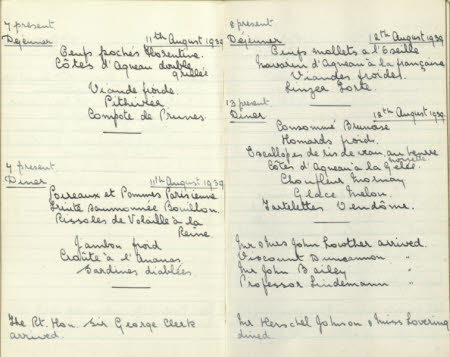 7 present
Déjeuner 11th August 1939
Oeufs pochés Florentine.
Côtes d'Agneau double
grillée
Viande froide.
Pithivier
Compote de Prunes.
7 present
Diner 11th August 1939
Poireaux et Pommes Parisienne
Truite Saumonée Bouillon.
Rissoles de Volaille à la
Reine.
Jambon froid
Croûte à l'Ananas.
Sardines diablées
The Rt. Hon. Sir George Clerk
arrived.
8 present
Déjeuner 12th August 1939
Oeufs mollets a l'Oseille
Navarin d'Agneau à la française
Viandes froides.
Linzer Torte.
13 present
Diner 12th August 1939.
Consommé Brunoise
Homards froid.
Escallopes de ris de veau, au beurre
noisette
Côtes d'Agneau à la Gelée.
Choufleur Mornay
Glace Melon.
Tartelettes Vendôme.
Mr & Mrs John Lowther arrived.
Viscount Duncannon "
Mr John Bailey "
Professor Lindemann "
Mr Herschel Johnson & Miss Lovering
dined.